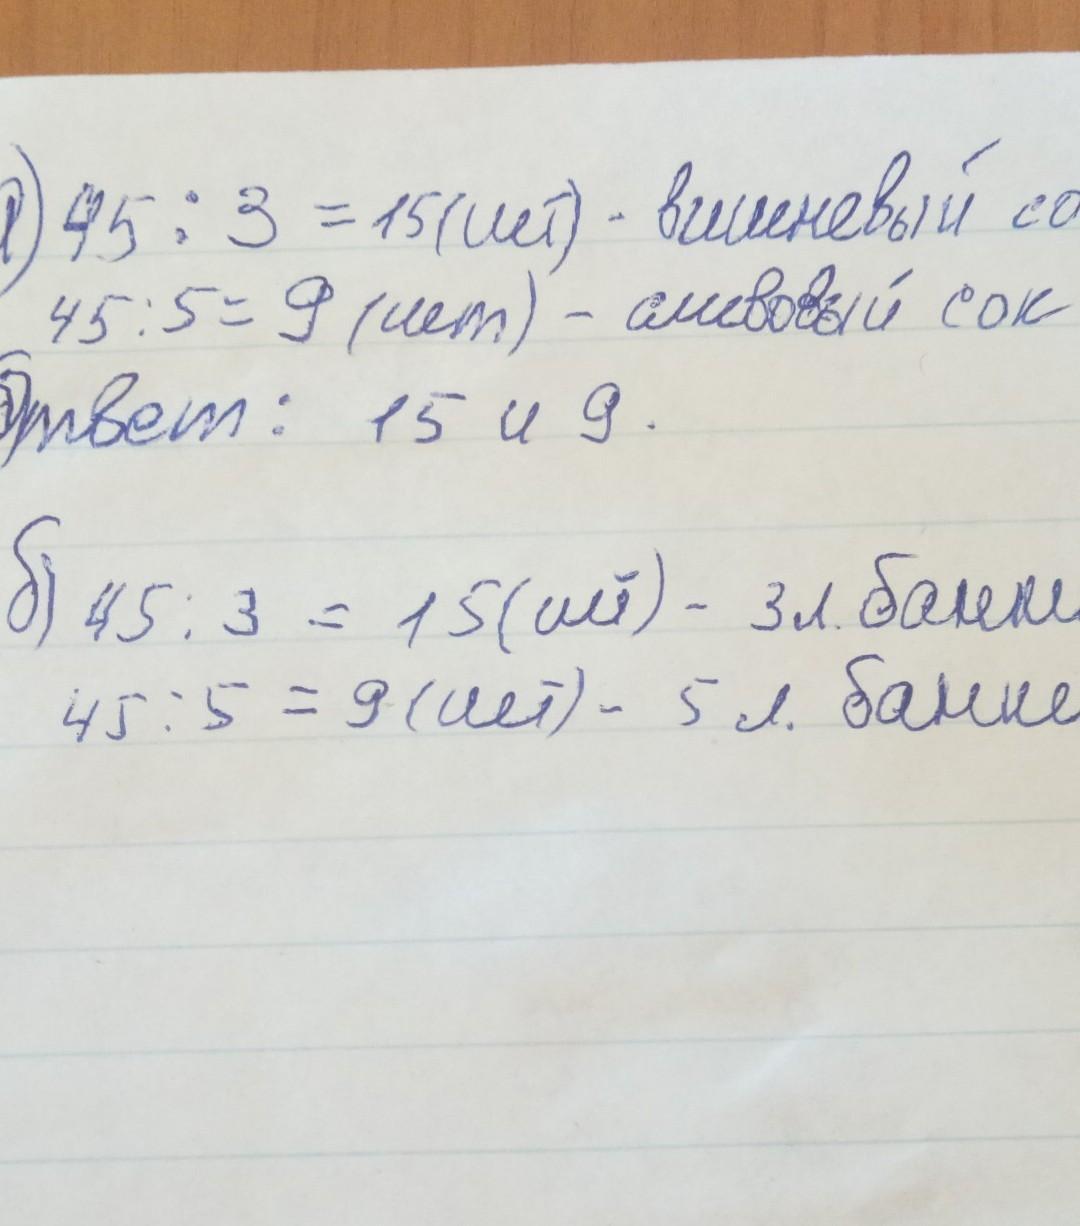 а) 45 : 3 = 15 (шт) - вишневый со
45 : 5 = 9 (шт) - сливовый сок
Ответ: 15 и 9.
б) 45 : 3 = 15 (шт) - 3 л. банки
45 : 5 = 9 (шт) - 5 л. банки